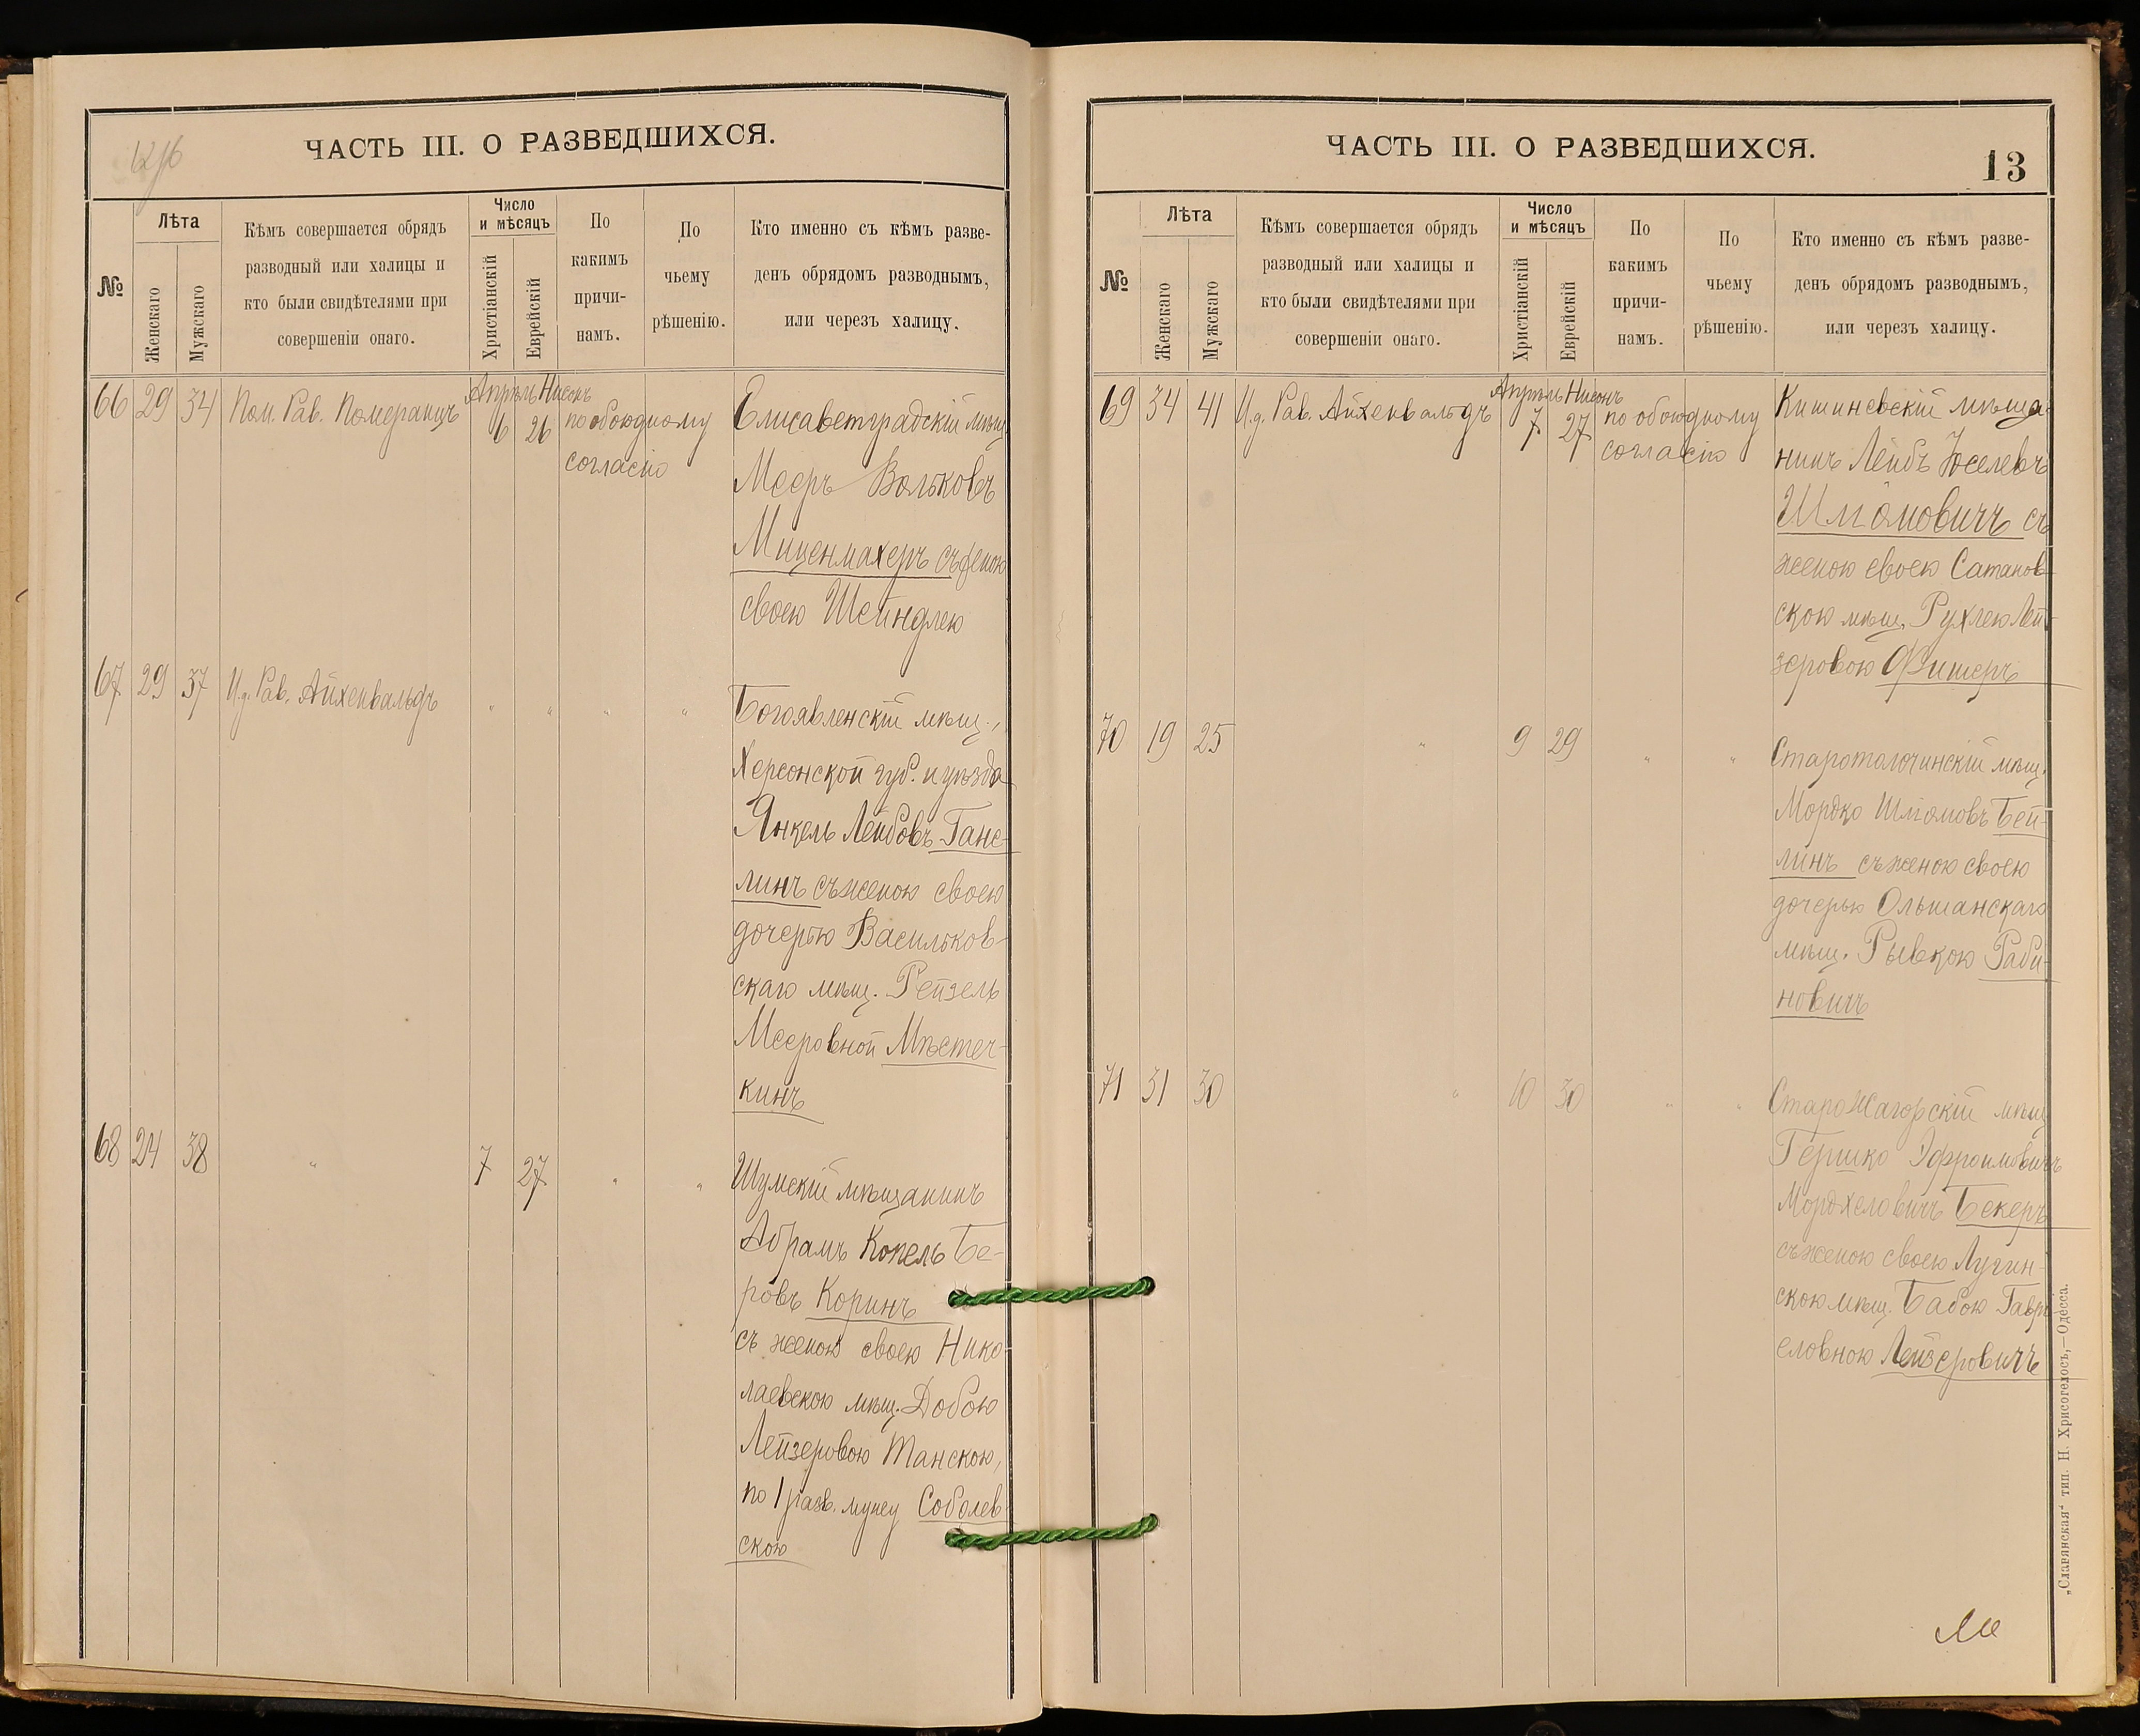 ЧАСТЬ III. О РАЗВЕДШИХСЯ.
№
Лѣта
Женскаго
Мужскаго
Кѣмъ совершается обрядъ
разводный или халицы и
кто были свидѣтелями при
совершеніи онаго.
Число
и мѣсяцъ
Христіанскій
Еврейскій
По
какимъ
причи-
намъ.
По
чьему
рѣшенію.
Кто именно съ кѣмъ разве-
денъ обрядомъ разводнымъ,
или черезъ халицу.
66 29 34 Пом. Рав. Померанцъ Апрѣль Нисонъ
6 26 по обоюдному
согласію
Елисаветградскій мѣщ.
Мееръ Вольковъ
Миценмахеръ съ женою
своею Шейндлею
67 29 37 И.д. Рав. Айхенвальдъ " " " "
Богоявленскій мѣщ.,
Херсонской губ. и уѣзда
Янкель Лейбовъ Ганс-
линъ съ женою своею
дочерью Васильков-
скаго мѣщ. Рейзель
Мееровной Мѣстеч-
кинъ
68 24 38 " 7 27 " "
Шумскій мѣщанинъ
Абрамъ Копель Бе-
ровъ Коринъ
съ женою своею Нико-
лаевскою мѣщ. Добою
Лейзеровою Танскою,
по 1 разв. мужу Соболев-
скою
ЧАСТЬ III. О РАЗВЕДШИХСЯ.
13
№
Лѣта
Женскаго
Мужскаго
Кѣмъ совершается обрядъ
разводный или халицы и
кто были свидѣтелями при
совершеніи онаго.
Число
и мѣсяцъ
Христіанскій
Еврейскій
По
какимъ
причи-
намъ.
По
чьему
рѣшенію.
Кто именно съ кѣмъ разве-
денъ обрядомъ разводнымъ,
или черезъ халицу.
69 34 41 И.д. Рав. Айхенвальдъ Апрѣль Нисонъ
7 27 по обоюдному
согласію
Кишиневскій мѣща-
нинъ Лейбъ Юселевъ
Шлiомовичъ съ
женою своею Сатанов-
скою мѣщ. Рухлею Лей-
зеровою Фишеръ
70 19 25 " 9 29 " "
Старотолочинскій мѣщ.
Мордко Шлiомовъ Бей-
линъ съ женою своею
дочерью Ольшанскаго
мѣщ. Рывкою Раби-
новичъ
71 31 30 " 10 30 " "
Старожагорскій мѣщ.
Гершко Эфроимовичъ
Мордхеловичъ Бекеръ
съ женою своею Лугин-
скою мѣщ. Бабою Гаври-
еловною Лейзеровичъ
„Славянская“ тип. Н. Хрисогелосъ,—Одесса.